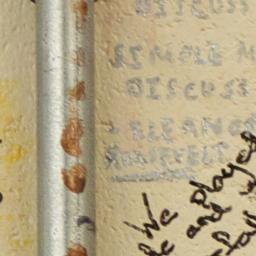 DISCUSS
SIMPLE M
DISCUSS
- ELEANO
ROOSEVELT
We played
and